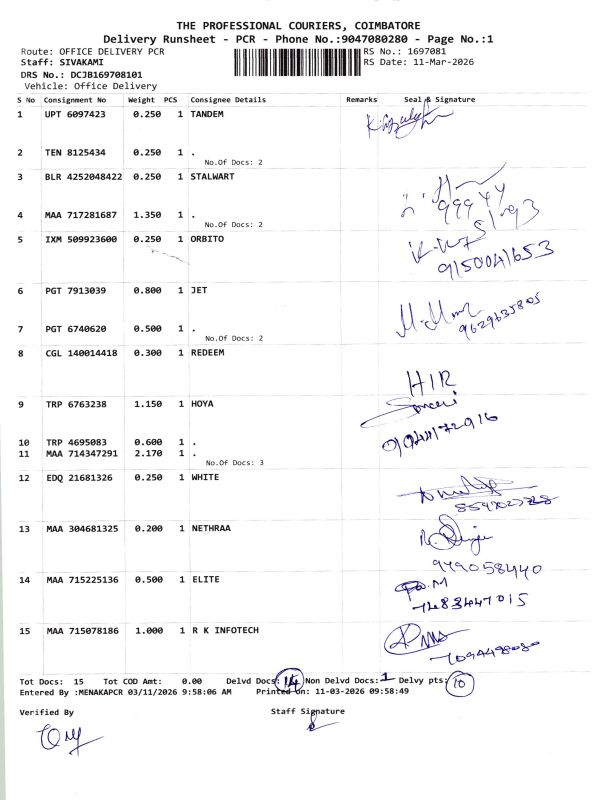 THE PROFESSIONAL COURIERS, COIMBATORE
Delivery Runsheet - PCR - Phone No.:9047080280 - Page No.:1
Route: OFFICE DELIVERY PCR RS No.: 1697081
Staff: SIVAKAMI RS Date: 11-Mar-2026
DRS No.: DCJB169708101
Vehicle: Office Delivery
S No Consignment No Weight PCS Consignee Details Remarks Seal & Signature
1 UPT 6097423 0.250 1 TANDEM
2 TEN 8125434 0.250 1 .
No.Of Docs: 2
3 BLR 4252048422 0.250 1 STALWART
4 MAA 717281687 1.350 1 .
No.Of Docs: 2
5 IXM 509923600 0.250 1 ORBITO
9150041653
6 PGT 7913039 0.800 1 JET
9629635805
7 PGT 6740620 0.500 1 .
No.Of Docs: 2
8 CGL 140014418 0.300 1 REDEEM
HIR
9 TRP 6763238 1.150 1 HOYA
10 TRP 4695083 0.600 1 .
11 MAA 714347291 2.170 1 .
No.Of Docs: 3
12 EDQ 21681326 0.250 1 WHITE
13 MAA 304681325 0.200 1 NETHRAA
9790058440
14 MAA 715225136 0.500 1 ELITE
7483447015
15 MAA 715078186 1.000 1 R K INFOTECH
Tot Docs: 15 Tot COD Amt: 0.00 Delvd Docs: 14 Non Delvd Docs: 1 Delvy pts: 10
Entered By :MENAKAPCR 03/11/2026 9:58:06 AM Printed on: 11-03-2026 09:58:49
Verified By Staff Signature